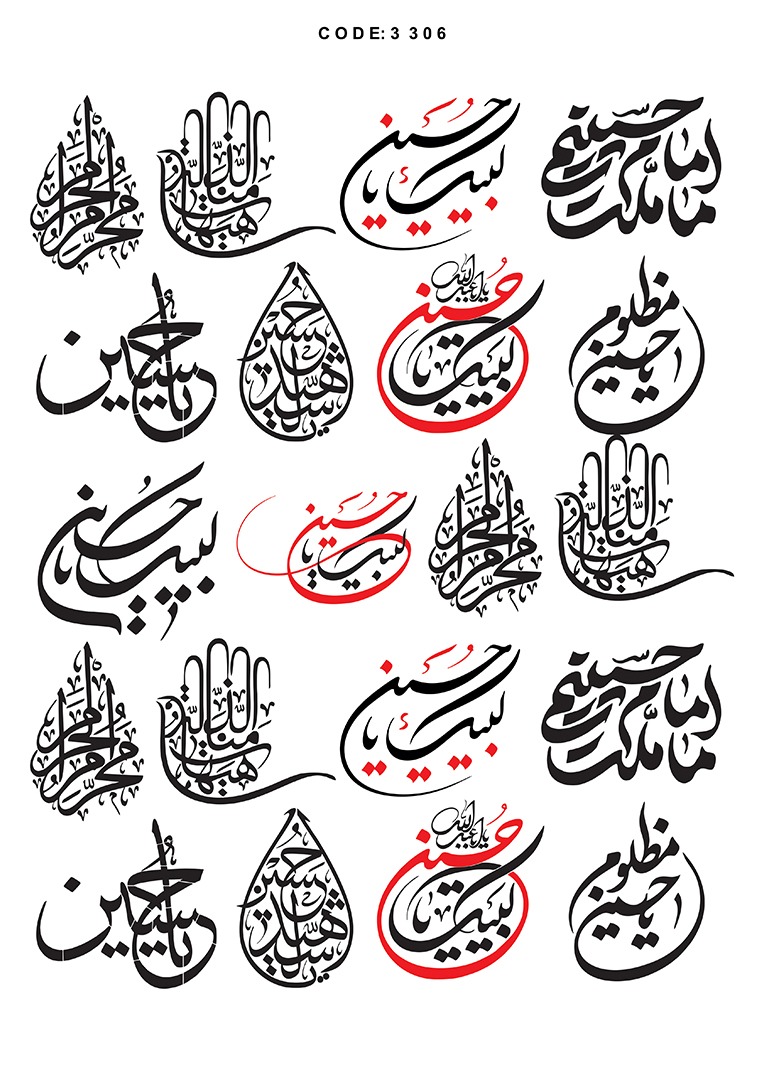 CODE:3 306
محرم الحرام
هیهات منا الذلة
لبیک یا حسین
ما ملت امام حسینیم
یا حسین
یا سیدالشهدا حسین
یا اباعبدالله
لبیک یا حسین
یا حسین مظلوم
لبیک یا حسین
لبیک یا حسین
محرم الحرام
هیهات منا الذلة
محرم الحرام
هیهات منا الذلة
لبیک یا حسین
ما ملت امام حسینیم
یا حسین
یا سیدالشهدا حسین
یا اباعبدالله
لبیک یا حسین
یا حسین مظلوم